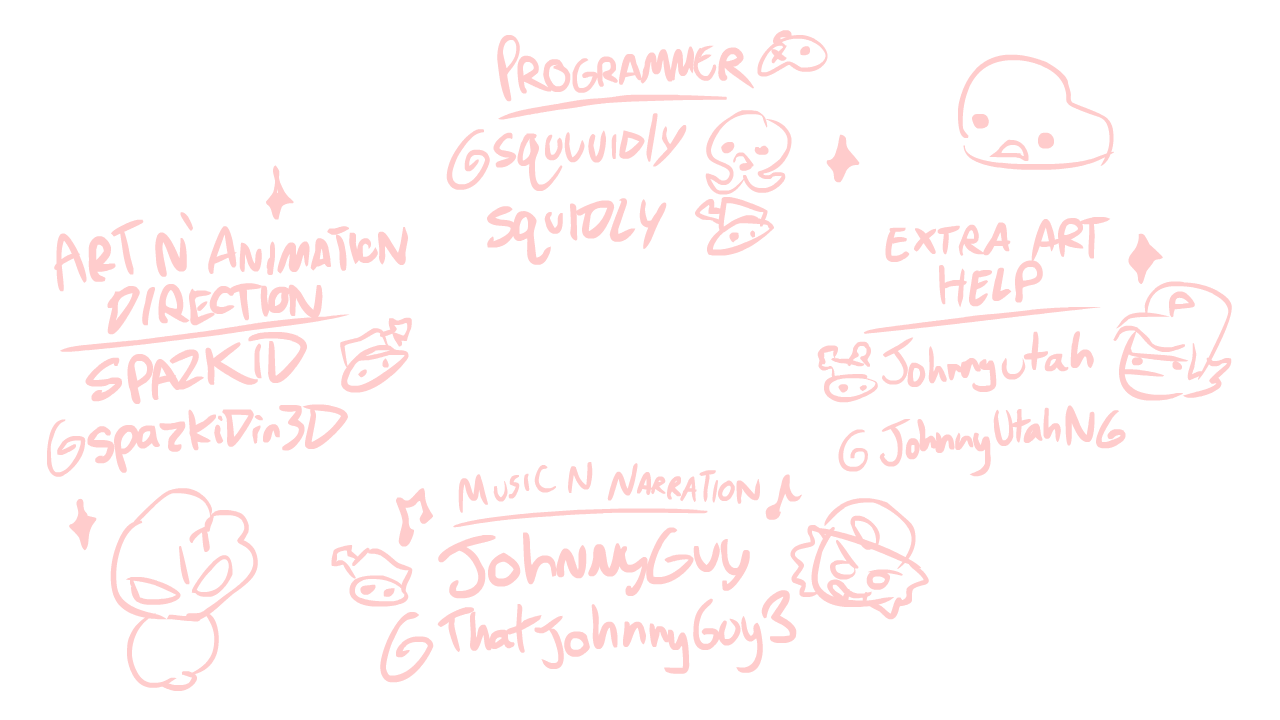 PROGRAMMER
@squuuidly
squidly
ART N' ANIMATION
DIRECTION
SPAZKID
@spazKiDin3D
EXTRA ART
HELP
Johnnyutah
@JohnnyUtahNG
MUSIC N NARRATION
JohnnyGuy
@ThatJohnnyGuy3